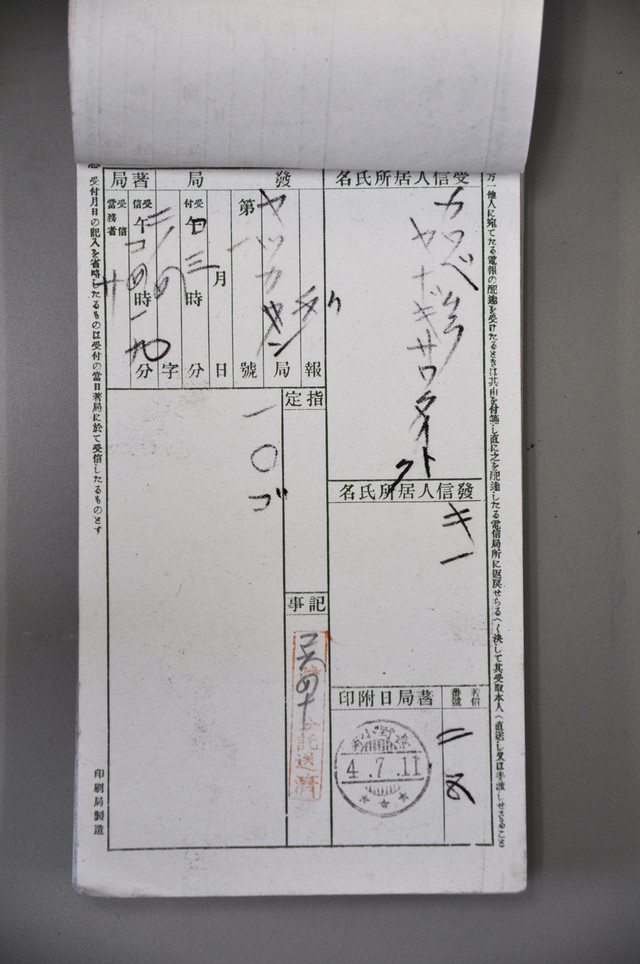 万一他人に宛てたる電報の配達を受けたるときは其由を付箋し直に之を配達したる電信局所に返戻せらるべく決して其受取本人へ直送し又は手渡しせざること
受信人居所氏名
カツベムラ
ヤナギサワタイト
ク
發信人居所氏名
キ一
著信番號
二五
著局日附印
4.7.11
發局
報
局
ヤツカ
第 一 號
月 日
受付
午 三時 分
字
著局
受信
午 コ 四時 一九分
受信當務者
サ
指定
一〇ゴ
記事
託送濟
受付月日の記入を省略したるものは受付の當日著局に於て受信したるものとす
印刷局製造